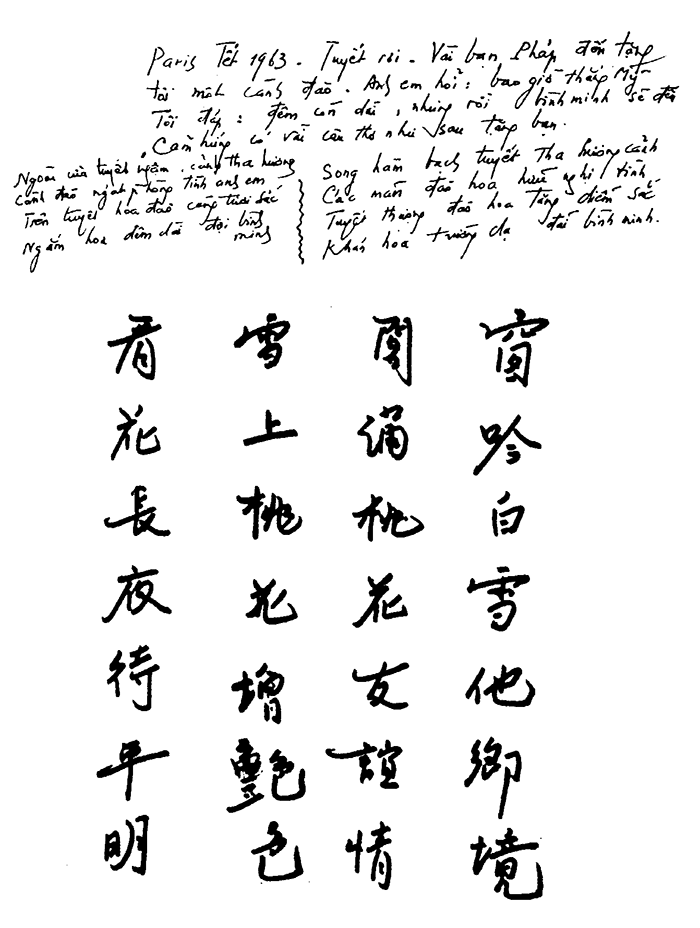 Paris Tết 1963 - Tuyết rơi - Vài bạn Pháp đến tặng
tôi một cành đào. Anh em hỏi: bao giờ thắng Mỹ
Tôi đáp: đêm còn dài, nhưng rồi bình minh sẽ đến
Cảm hứng có vài câu thơ như sau tặng bạn.
Ngoài cửa tuyết ngậm cảng tha hương
Cành đào ngát hồng tình anh em
Trên tuyết hoa đào càng tươi sắc
Ngắm hoa đêm dài đợi bình minh
Song hàm bạch tuyết tha hương cảnh
Các mãn đào hoa hữu nghị tình
Tuyết thượng đào hoa tăng diễm sắc
Khán hoa trường dạ đãi bình minh.
窗吟白雪他鄉境
閣滿桃花友誼情
雪上桃花增艷色
看花長夜待平明